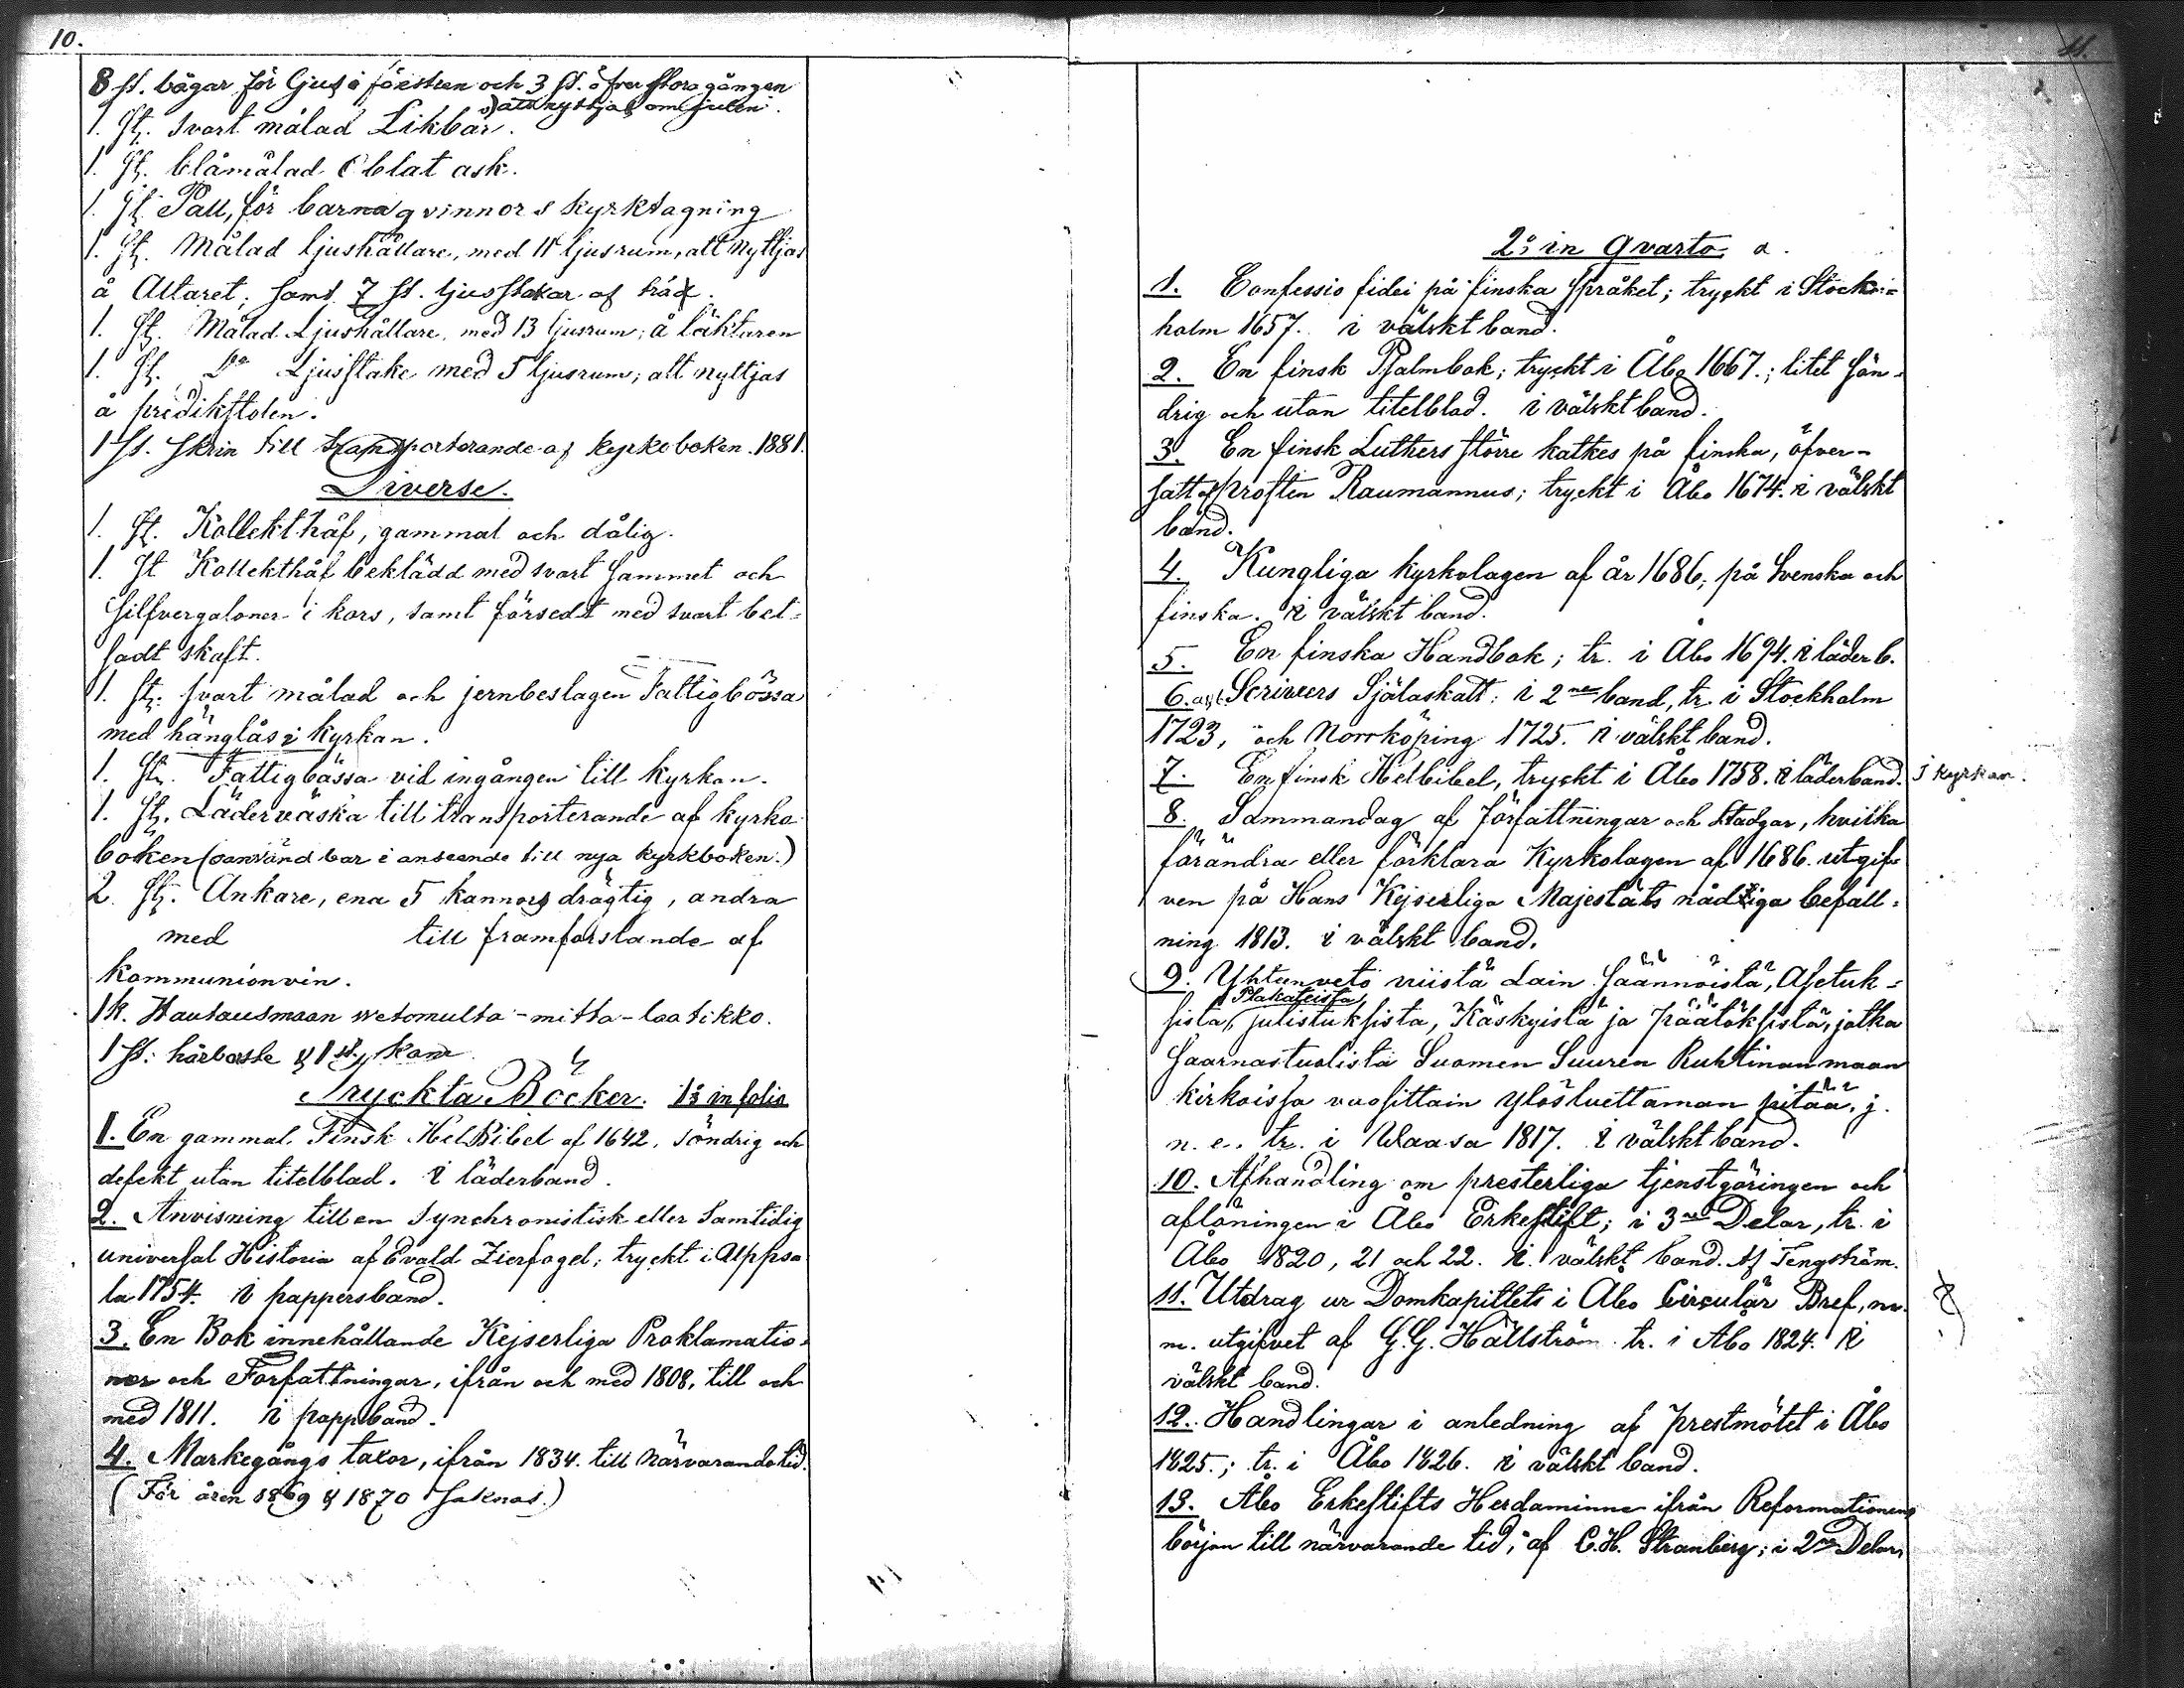 10.
8 st. bågar för ljus i fönstren och 3 st. öfver stora gången
att nyttjas om julen.
1. St. Svart målad Likbår.
1. St. blåmålad Oblat ask.
1. St. Pall, för barnaqvinnors kyrktagning
1. St. Målad ljushållare, med 11 ljusrum, att nyttjas
å Altaret; samt 7 st. ljusstakar af träd.
1. St. Målad Ljushållare, med 13 ljusrum; å läktaren
1. St. Do Ljusstake med 5 ljusrum; att nyttjas
å predikstolen.
1 St. Skrin till transporterande af kyrkoboken. 1881.
Diverse.
1. St. Kollekthåf, gammal och dålig.
1. St Kollekthåf beklädd med svart Sammet och
Silfvergaloner i kors, samt försedt med svart bet-
sadt skaft.
1. St. Svart målad och jernbeslagen Fattigbössa
med hänglås i kyrkan.
1. St. Fattigbössa vid ingången till kyrkan.
1. St. Läderväska till transporterande af kyrko
boken (oanvänd bar i anseende till nya kyrkboken.)
2. St. Ankare, ena 5 kannors drägtig, andra
med till framforslande af
kommunionvin.
1 k. Hautausmaan wetomulta-mitta-laatikko.
1 St. hårborste & 1 st. kam
Tryckta Böcker. 1:o in folio
1. En gammal Finsk HelBibel af 1642, söndrig och
defekt utan titelblad. i läderband.
2. Anvisning till en Synchronistisk eller Samtidig
universal Historia af Evald Zierfogel; tryckt i Uppsa
la 1754. i pappersband.
3. En Bok innehållande Kejserliga Proklamatio-
ner och Författningar, ifrån och med 1808, till och
med 1811. i pappband.
4. Markegångs taxor, ifrån 1834. till närvarande tid.
(För åren 1869 & 1870 saknas.)
11.
2:o in qvarto
1. Confessio fidei på finska Språket; tryckt i Stock-
holm 1657. i välskt band.
2. En finsk Psalmbok; tryckt i Åbo 1667.; litet Sön-
drig och utan titelblad. i välskt band.
3. En finsk Luthers större katkes på finska, öfver-
satt af prosten Raumannus; tryckt i Åbo 1674. i välskt
band.
4. Kungliga kyrkolagen af år 1686, på Svenska och
finska. i välskt band.
5. En finska Handbok; tr. i Åbo 1694. i läder b.
6. Scrivers Själaskatt: i 2ne band, tr. i Stockholm
1723, och Norrköping 1725. i välskt band.
7. En finsk Helbibel, tryckt i Åbo 1758. i läderband. I kyrkan.
8. Sammandag af Författningar och Stadgar, hvilka
förändra eller förklara Kyrkolagen af 1686. utgif-
ven på Hans Kejserliga Majestäts nådiga befall-
ning 1813. i välskt band.
9. Yhteenveto niistä Lain Säännöistä, Asetuk-
Plakateista,
sista, julistuksista, Käskyistä ja Päätöksistä, jotka
Saarnastuolista Suomen Suuren Ruhtinanmaan
kirkoissa vuosittain Ylösluettaman pitää, j.
n. e. tr. i Waasa 1817. i välskt band.
10. Afhandling om presterliga tjenstgöringen och
aflöningen i Åbo Erkestift; i 3ne Delar, tr. i
Åbo 1820, 21 och 22. i välskt band. Af Tengström.
11. Utdrag ur Domkapitlets i Åbo Circulär Bref, m.
m. utgifvet af G.G. Hällström tr. i Åbo 1824. i
välskt band.
12. Handlingar i anledning af prestmötet i Åbo
1825.; tr. i Åbo 1826. i välskt band.
13. Åbo Erkestifts Herdaminne ifrån Reformationens
början till närvarande tid; af C.H. Stranberg; i 2ne Delar,